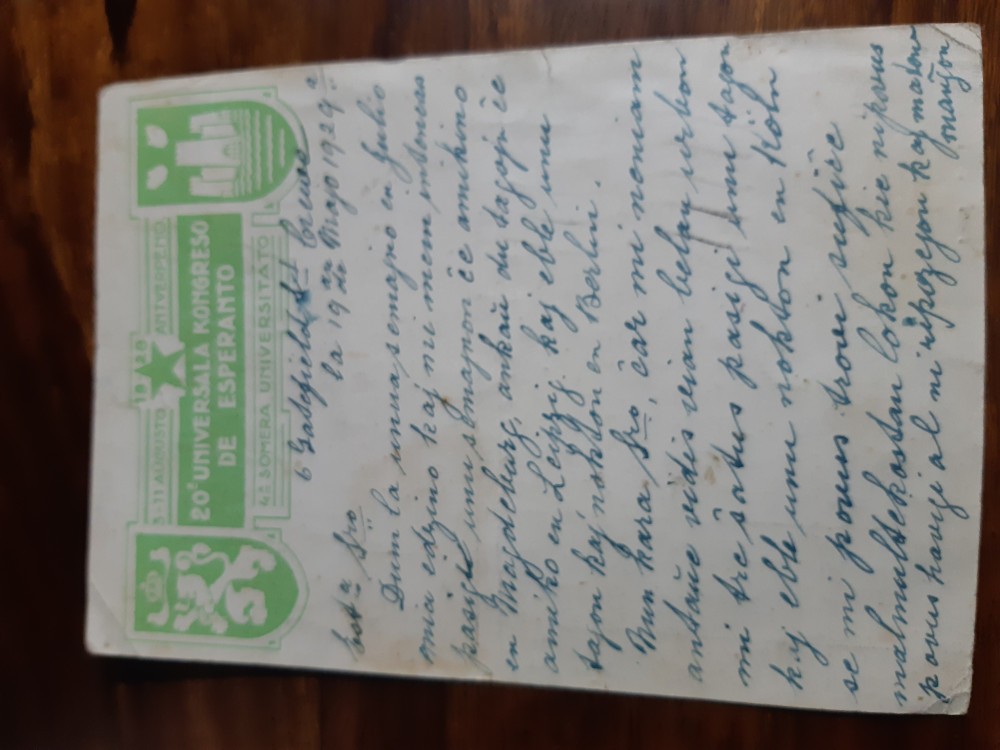 1928
3-11 AUGUSTO ANTVERPENO
20ª UNIVERSALA KONGRESO
DE ESPERANTO
4ª SOMERA UNIVERSITATO
6 Gatefield St Crewe
la 19an de Majo 1929a
Est. Sro
Dum la unua semajno en Julio
mia edzino kaj mi mem intencas
pasigi unu semajnon ĉe amikino
en Magdeburg, ankaŭ du tagojn ĉe
amiko en Leipzig kaj eble unu
tagon kaj nokton en Berlin.
Nun kara Sro, ĉar mi neniam
antaŭe vidis vian belan urbon
mi tre ŝatus pasigi unu tagon
kaj eble unu nokton en Köln
se mi povus trovi sufiĉe
malmultekostan lokon kie ni povus
povus havigi al ni ripozejon kaj maten
manĝon